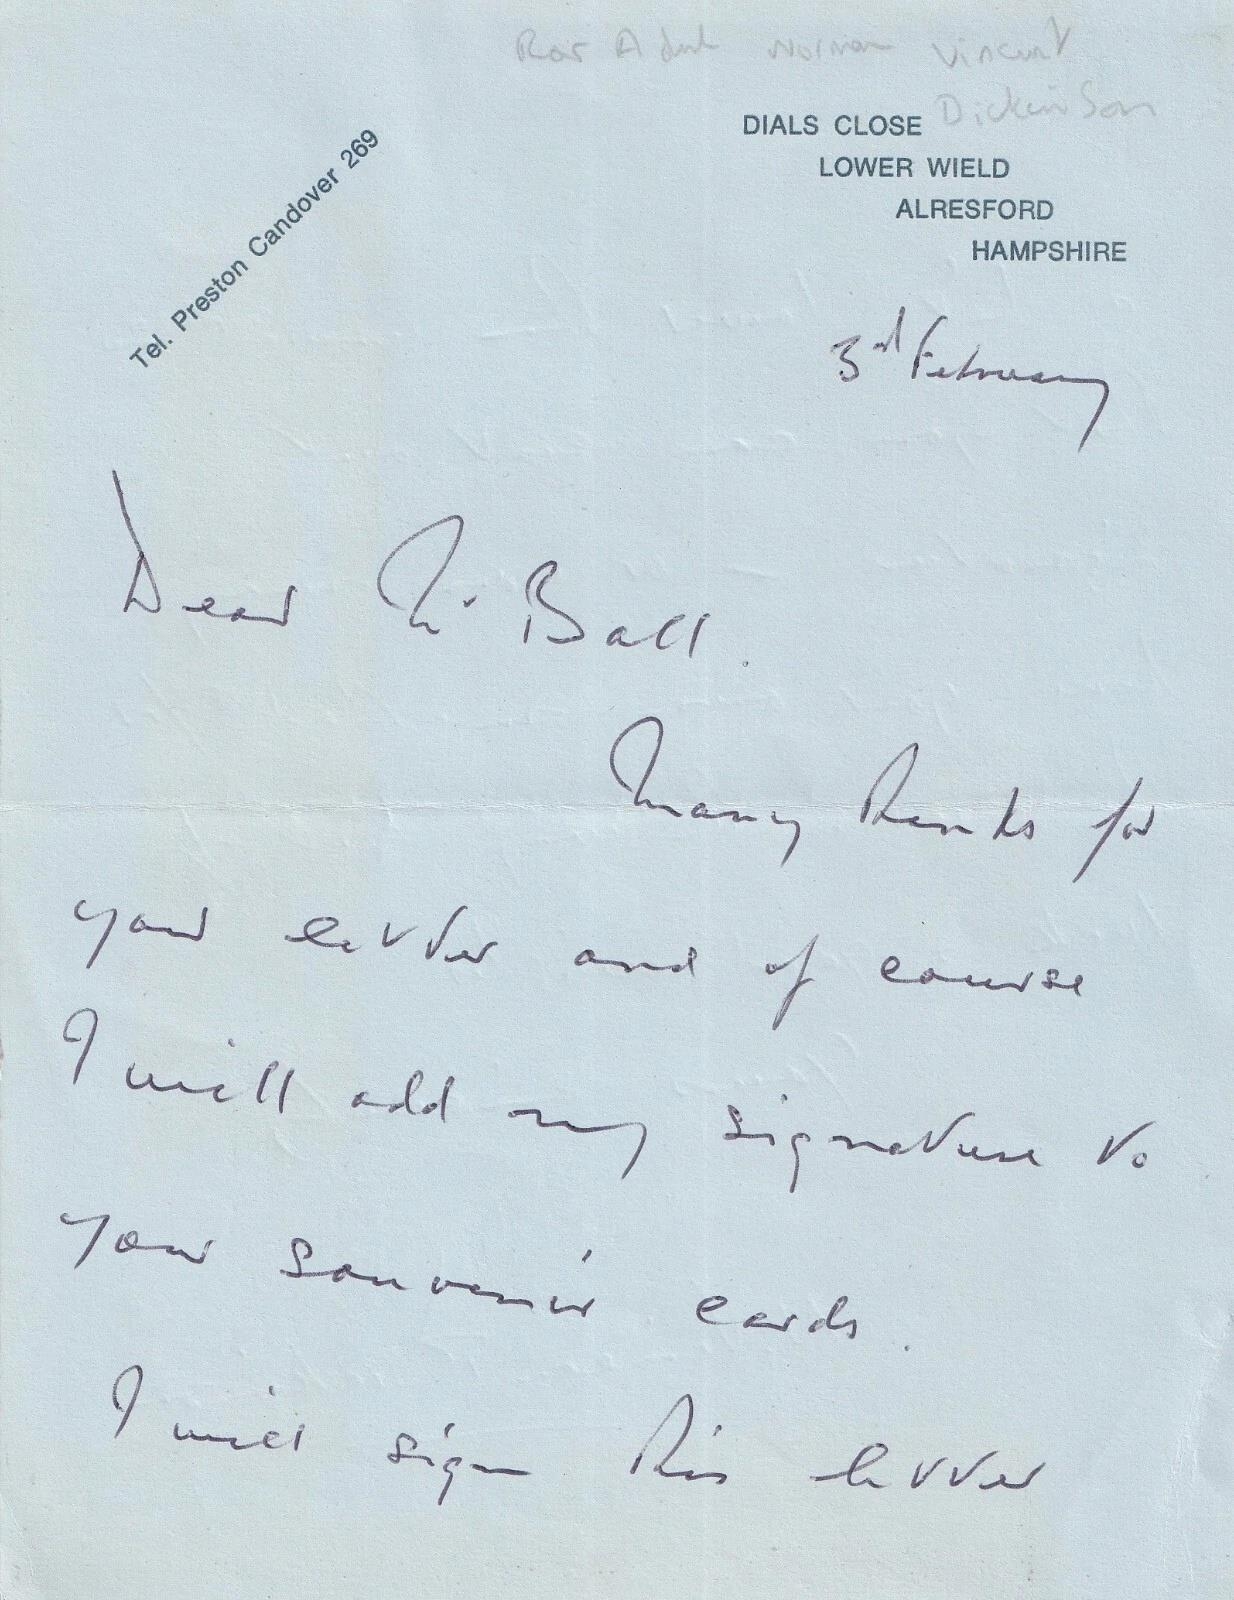 Rear Adml Norman Vincent
Dickinson
Tel. Preston Candover 269
DIALS CLOSE
LOWER WIELD
ALRESFORD
HAMPSHIRE
3rd February
Dear Mr Ball.
Many thanks for
your letter and of course
I will add my signature to
your souvenir cards.
I will sign this letter